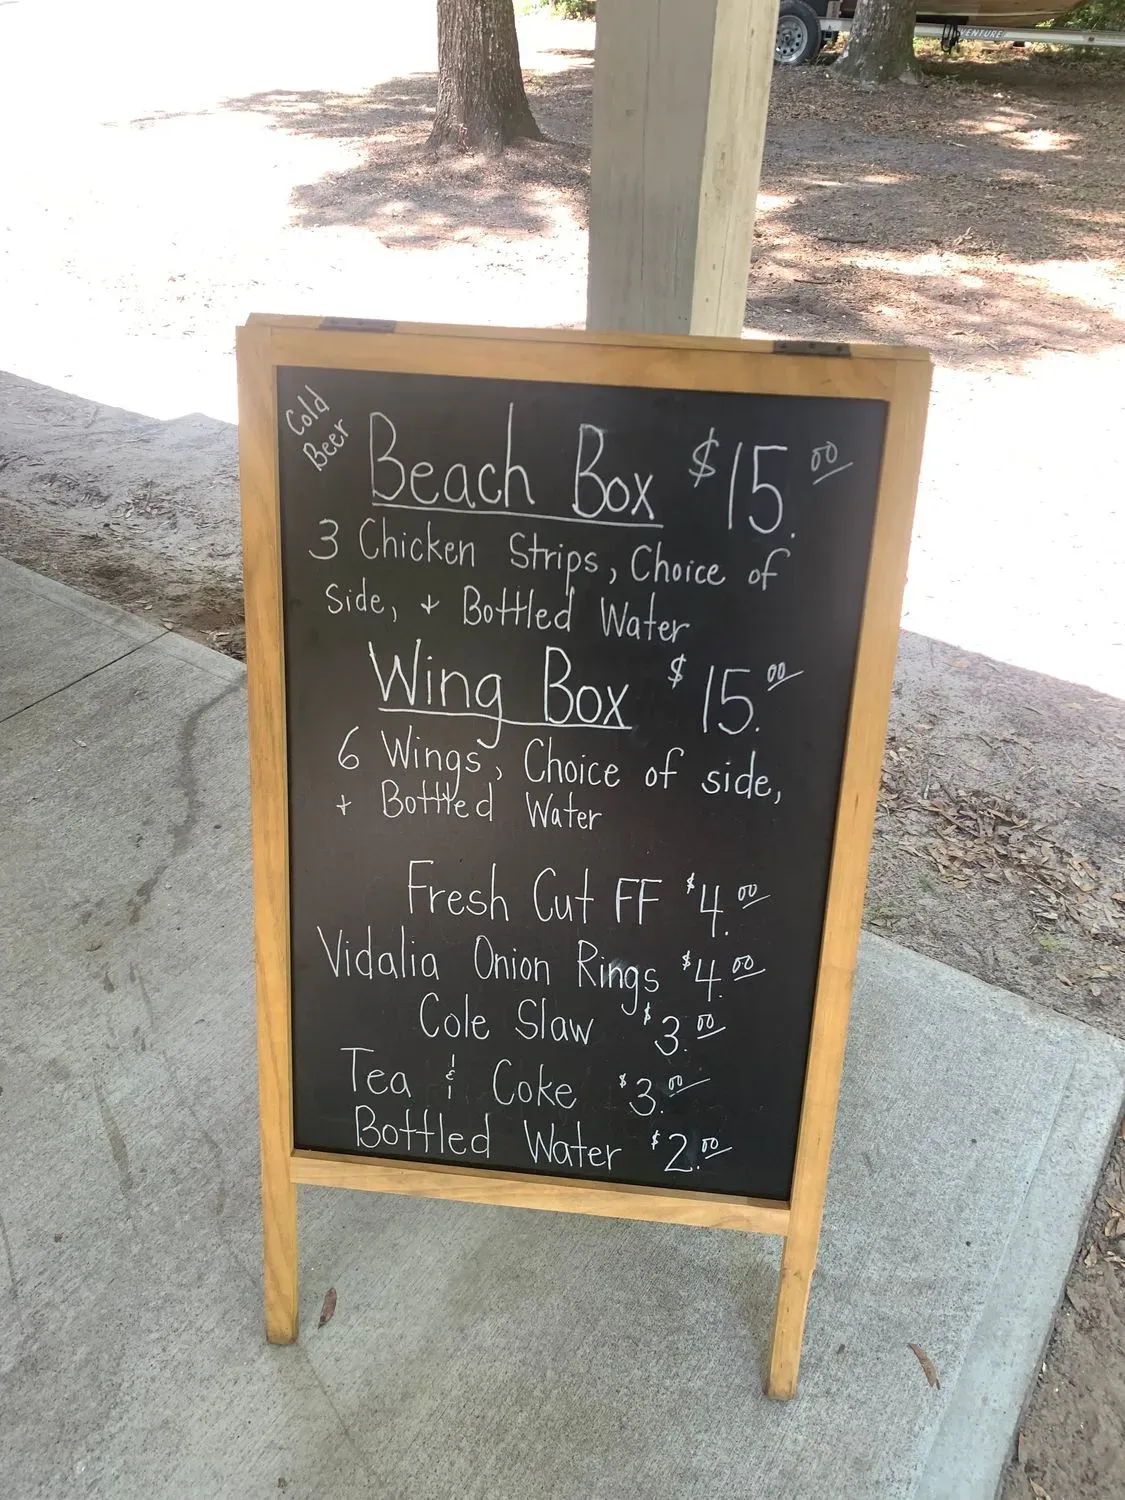 VENTURE
Cold
Beer
Beach Box $15.00
3 Chicken Strips, Choice of
side, + Bottled Water
Wing Box $15.00
6 Wings, Choice of side,
+ Bottled Water
Fresh Cut FF $4.00
Vidalia Onion Rings $4.00
Cole Slaw $3.00
Tea & Coke $3.00
Bottled Water $2.00